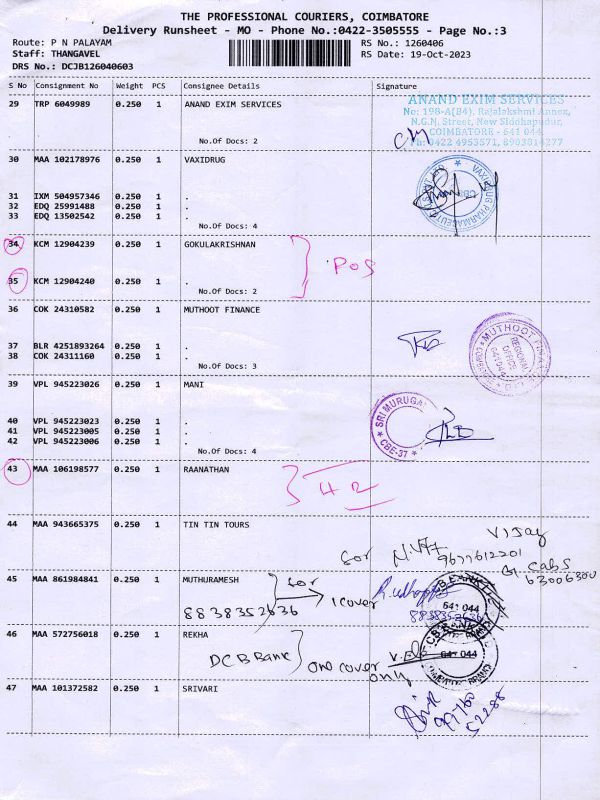 THE PROFESSIONAL COURIERS, COIMBATORE
Delivery Runsheet - MO - Phone No.:0422-3505555 - Page No.:3
Route: P N PALAYAM
RS No.: 1260406
Staff: THANGAVEL
RS Date: 19-Oct-2023
DRS No.: DCJB126040603
S No Consignment No Weight PCS Consignee Details Signature
29 TRP 6049989 0.250 1 ANAND EXIM SERVICES
ANAND EXIM SERVICES
No: 198-A(B4), Rajalakshmi Annex,
N.G.N. Street, New Siddhapudur,
COIMBATORE - 641 044
Ph: 0422 4953571, 8903814277
No.Of Docs: 2
30 MAA 102178976 0.250 1 VAXIDRUG
31 IXM 504957346 0.250 1 .
32 EDQ 25991488 0.250 1 .
33 EDQ 13502542 0.250 1 .
No.Of Docs: 4
34 KCM 12904239 0.250 1 GOKULAKRISHNAN
POS
35 KCM 12904240 0.250 1 .
No.Of Docs: 2
36 COK 24310582 0.250 1 MUTHOOT FINANCE
MUTHOOT
REGIONAL
OFFICE
37 BLR 4251893264 0.250 1 .
38 COK 24311160 0.250 1 .
No.Of Docs: 3
39 VPL 945223026 0.250 1 MANI
SRI MURUGAN
CBE-37
40 VPL 945223023 0.250 1 .
41 VPL 945223005 0.250 1 .
42 VPL 945223006 0.250 1 .
No.Of Docs: 4
43 MAA 106198577 0.250 1 RAANATHAN
44 MAA 943665375 0.250 1 TIN TIN TOURS
for
Vijay
9677612201
cabs
45 MAA 861984841 0.250 1 MUTHURAMESH
for
1 cover
8838352636
8838352636
641 044
46 MAA 572756018 0.250 1 REKHA
DCB Bank
one cover
only
641 044
47 MAA 101372582 0.250 1 SRIVARI